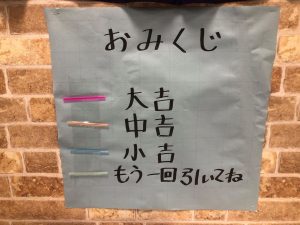 おみくじ
大吉
中吉
小吉
もう一回引いてね